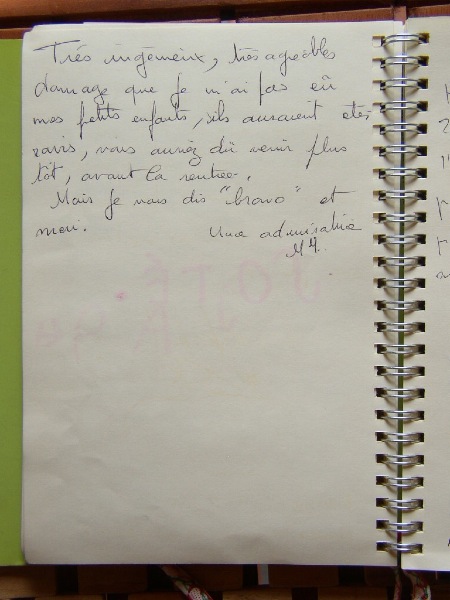 Très ingénieux, très agréables
damage que je n'ai pas eû
mes petits enfants, ils auraient étés
ravis, vous auriez dû venir plus
tôt, avant la rentrée.
Mais je vous dis "bravo" et
merci.
Une admiratrice